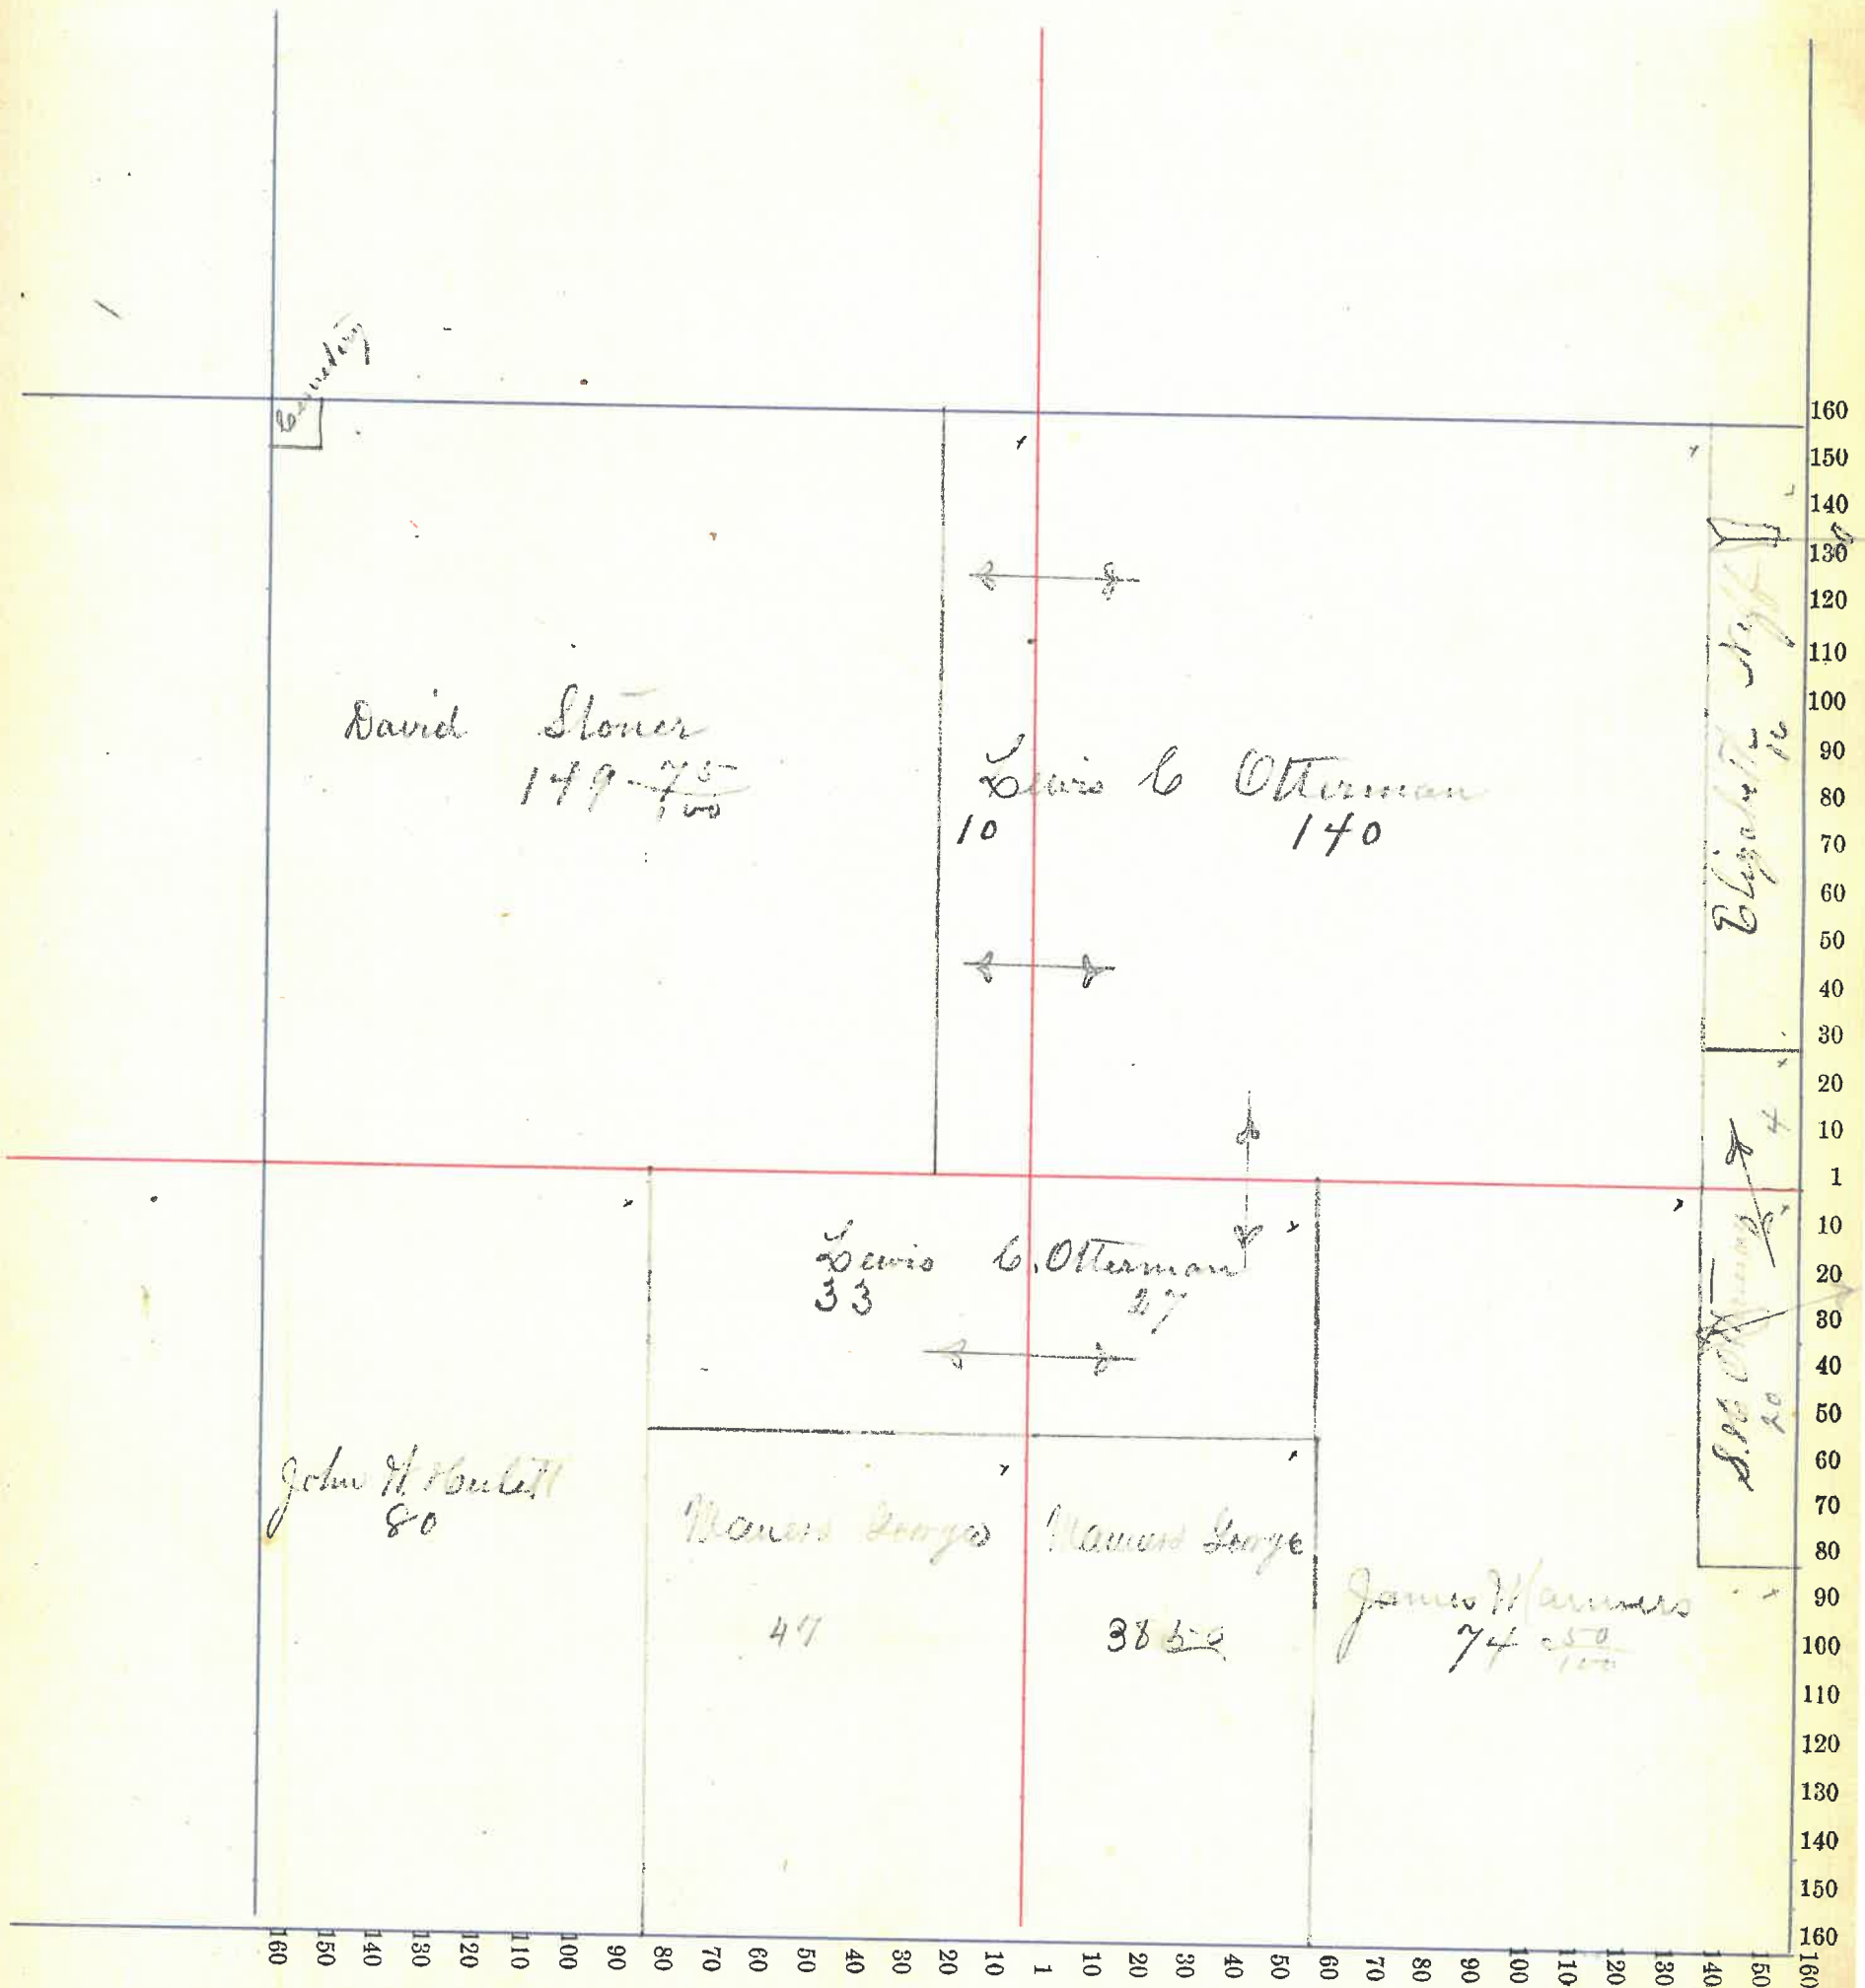 Cemetery
David Stoner
149 75/100
Lewis C Otterman
10
140
Elizabeth
16
4
Lewis C. Otterman
33
27
20
John H
80
George
47
George
38 50
James Manners
74 50/100
160
150
140
130
120
110
100
90
80
70
60
50
40
30
20
10
1
10
20
30
40
50
60
70
80
90
100
110
120
130
140
150
160
160
150
140
130
120
110
100
90
80
70
60
50
40
30
20
10
1
10
20
30
40
50
60
70
80
90
100
110
120
130
140
150
160